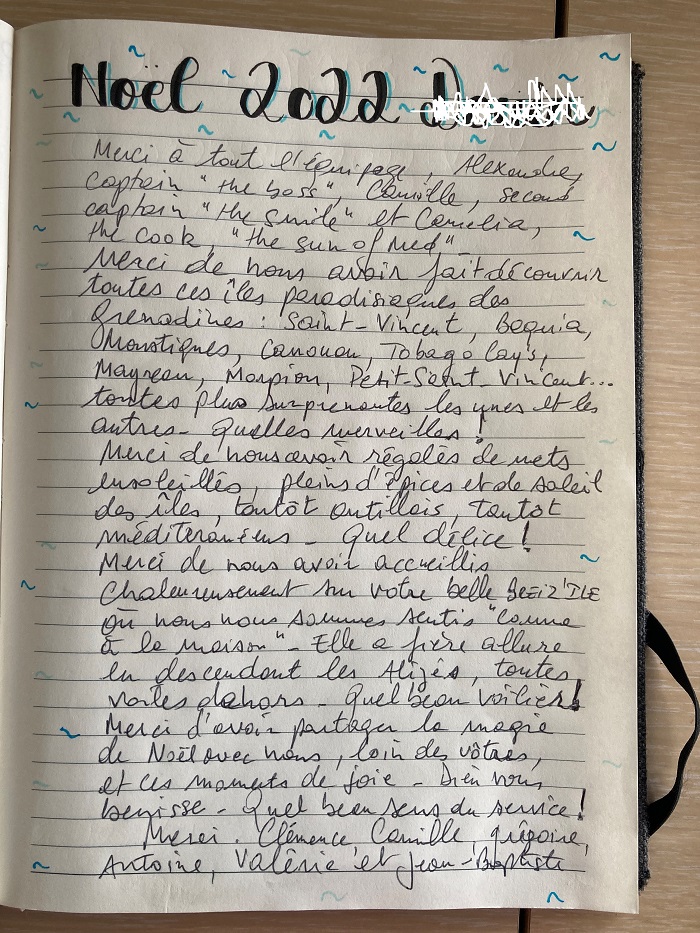 Noël 2022
Merci à tout l'équipage, Alexandre,
captain "the boss", Camille, second
captain "the smile" et Camelia,
the cook, "the sun of Med"
Merci de nous avoir fait découvrir
toutes ces îles paradisiaques des
Grenadines : Saint-Vincent, Bequia,
Moustiques, Canouan, Tobago Cay's,
Mayreau, Morpion, Petit-Saint-Vincent...
toutes plus surprenantes les unes et les
autres - Quelles merveilles !
Merci de nous avoir régalés de mets
ensoleillés, pleins d'épices et de soleil
des îles, tantôt antillais, tantôt
méditeranéens - Quel délice !
Merci de nous avoir accueillis
Chaleureusement sur votre belle BREIZ'ILE
où nous nous sommes sentis "comme
à la maison" - Elle a fière allure
en descendant les Alizés, toutes
voiles dehors - Quel beau voilier !
Merci d'avoir partager la magie
de Noël avec nous, loin des vôtres,
et ces moments de joie - Dieu vous
benisse - Quel beau sens du service !
Merci. Clémence Camille, grégoire,
Antoine, Valérie et Jean-Baptiste